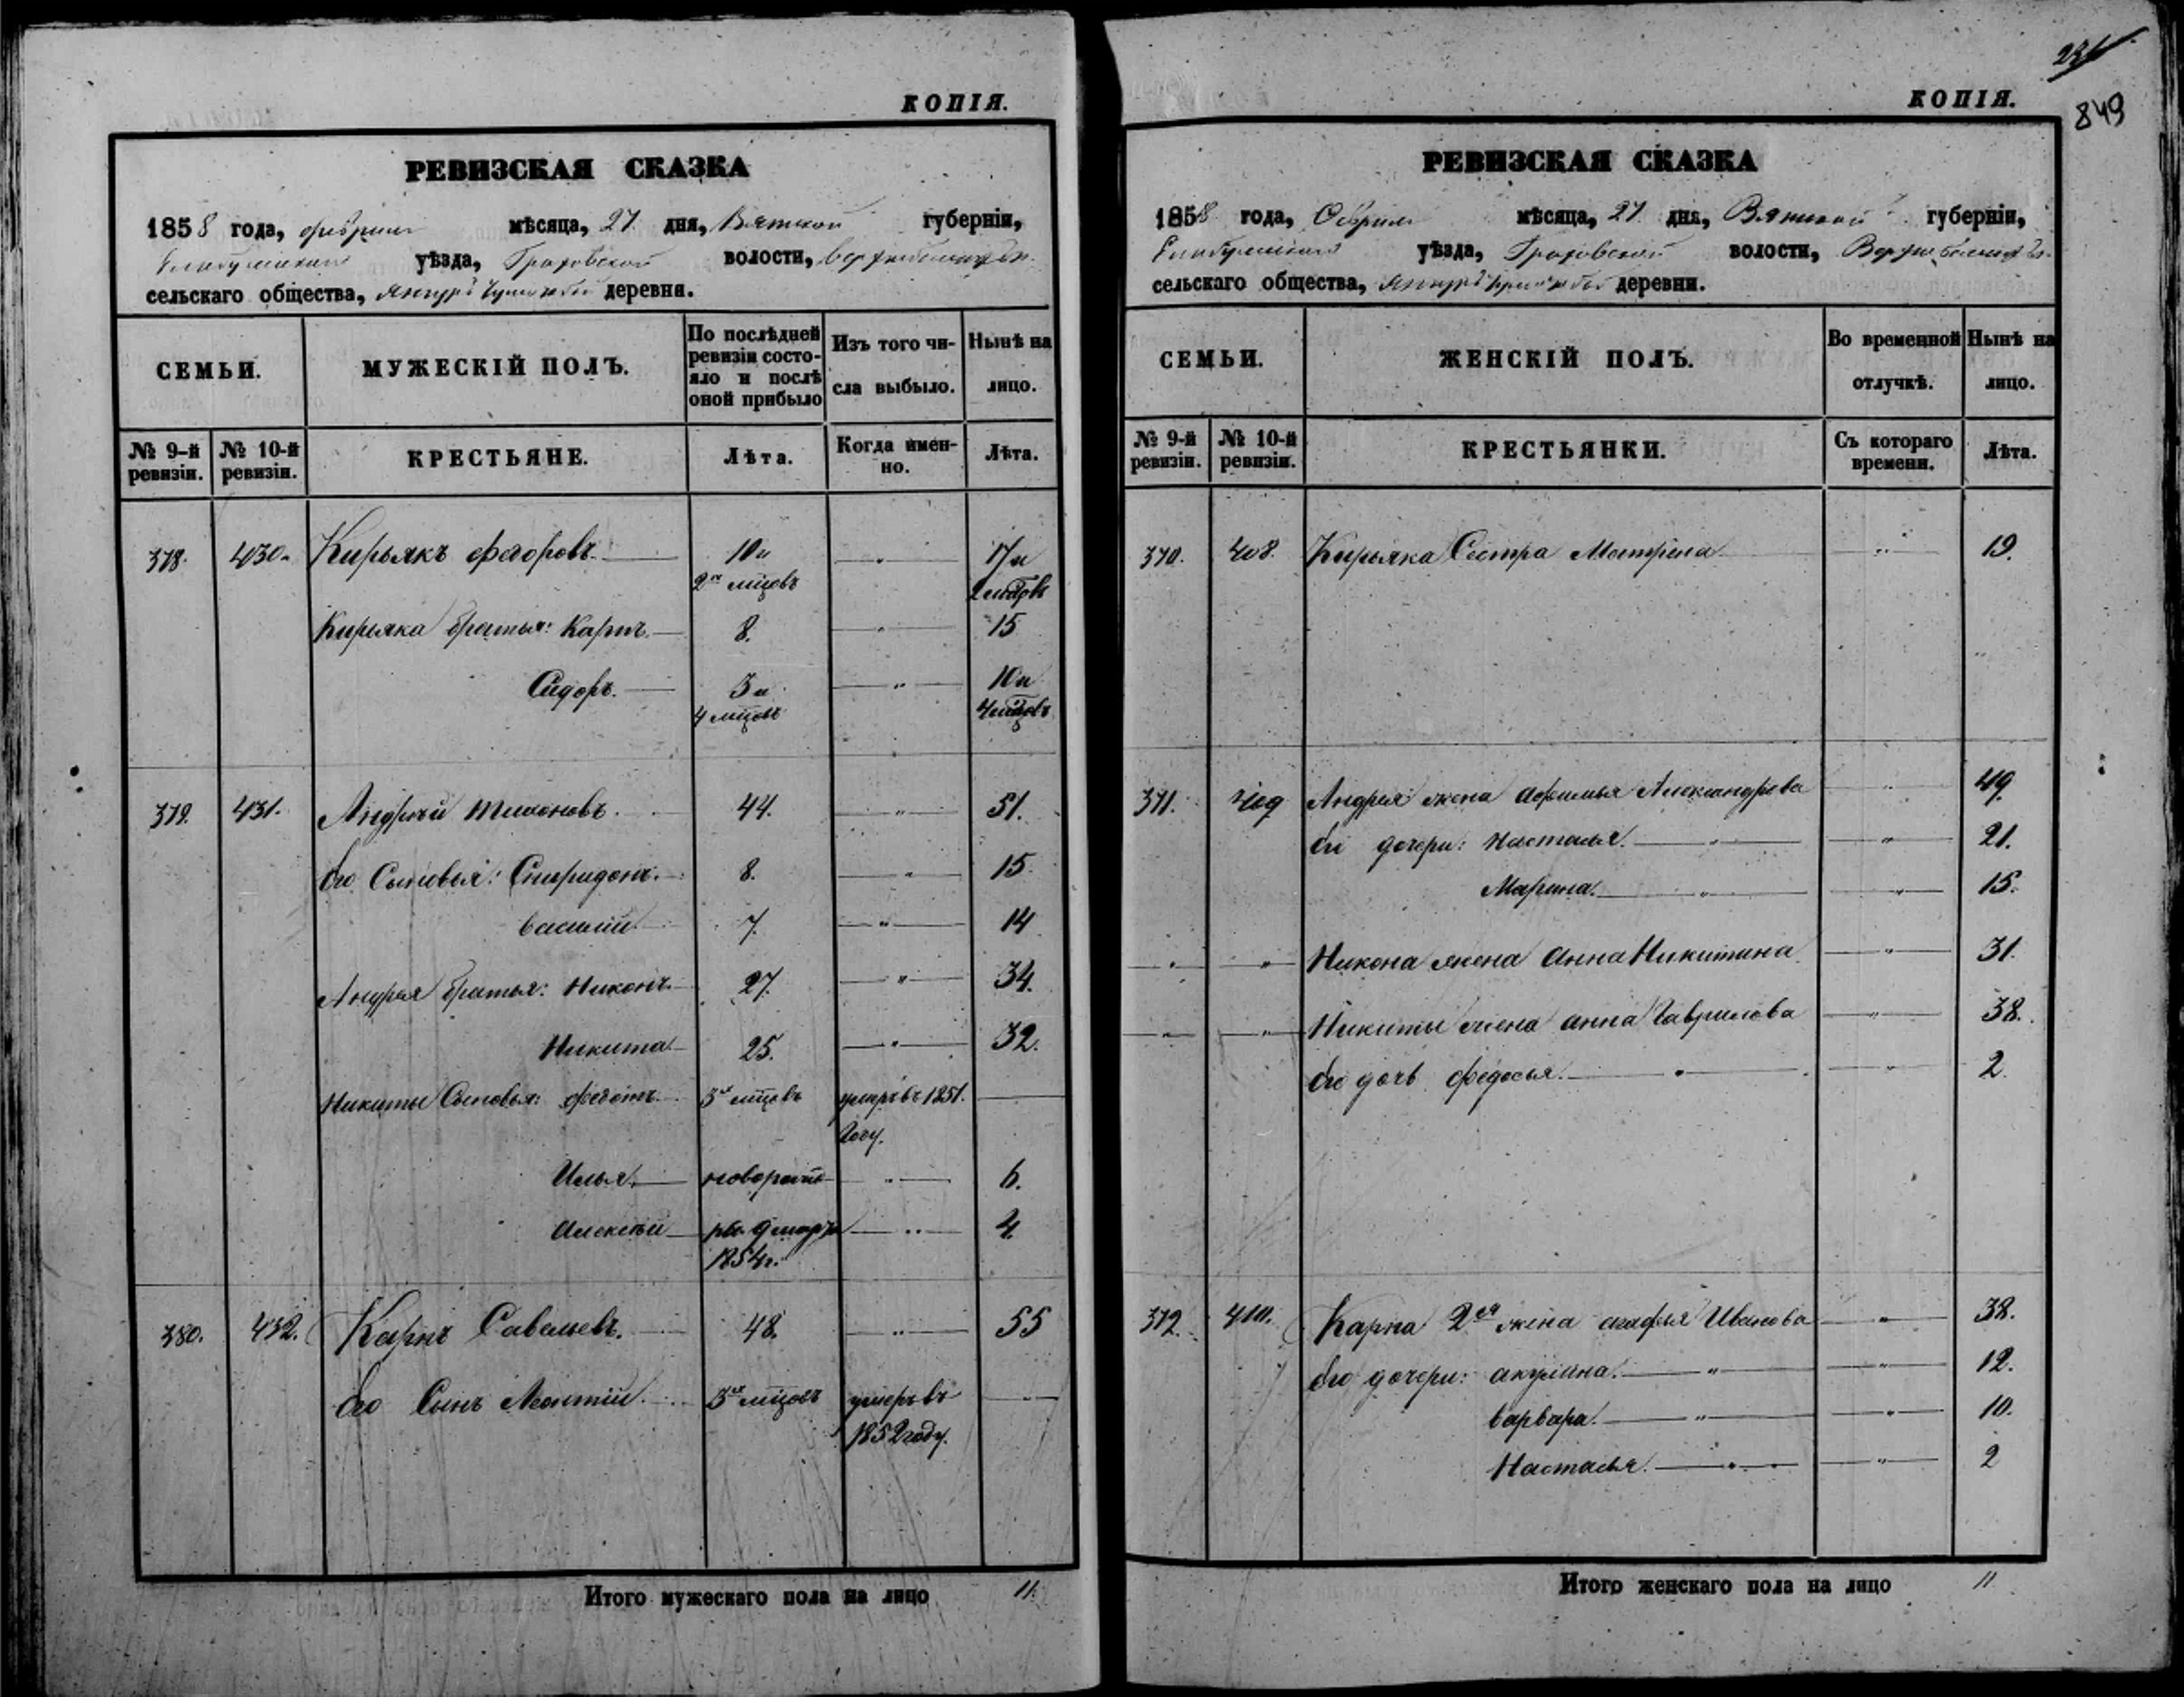 КОПІЯ.
РЕВИЗСКАЯ СКАЗКА
1858 года, февраля мѣсяца, 27 дня, Вятской губерніи,
Елабужскаго уѣзда, Граховской волости,
сельскаго общества, деревни.
СЕМЬИ. МУЖЕСКІЙ ПОЛЪ. По послѣдней ревизіи состояло и послѣ оной прибыло Изъ того числа выбыло. Нынѣ на лицо.
№ 9-й ревизіи. № 10-й ревизіи. КРЕСТЬЯНЕ. Лѣта. Когда именно. Лѣта.
378. 430. Кирьякъ Федоровъ 10 и 2 мцовъ " 17 и
Кирьяка братья: Карпъ. 8. " 15
Сидоръ. 3 и 4 мцовъ " 10 и
379. 431. Андрей Тихоновъ. 44. " 51.
Его Сыновья: Спиридонъ. 8. " 15.
Василий 7. " 14
Андрея братья: Никонъ 27. " 34.
Никита 25. " 32.
Никиты Сыновья: Федотъ 3 мцовъ умеръ въ 1851. году.
Илья. " 6.
Алексѣй 1854 г. " 4.
380. 432. Карпъ Савельевъ. 48. " 55
Его Сынъ Леонтій 3 мцовъ умеръ въ 1852 году.
Итого мужескаго пола на лицо 11.
849
КОПІЯ.
РЕВИЗСКАЯ СКАЗКА
1858 года, Февраля мѣсяца, 27 дня, Вятской губерніи,
Елабужскаго уѣзда, Граховской волости,
сельскаго общества, деревни.
СЕМЬИ. ЖЕНСКІЙ ПОЛЪ. Во временной отлучкѣ. Нынѣ на лицо.
№ 9-й ревизіи. № 10-й ревизіи. КРЕСТЬЯНКИ. Съ котораго времени. Лѣта.
370. 408. Кирьяка Сестра Матрена " 19.
371. 409 Андрея жена Афимья Александрова " 49.
Ея дочери: Настасья. " " 21.
Марина. " " 15.
" " Никона жена Анна Никитина " 31.
" " Никиты жена Анна Гаврилова " 38.
Его дочь Федосья. " " 2
372. 410. Карпа 2ая жена Агафья Иванова " 38.
Его дочери: Акулина. " " 12.
Варвара. " " 10.
Настасья. " " 2
Итого женскаго пола на лицо 11